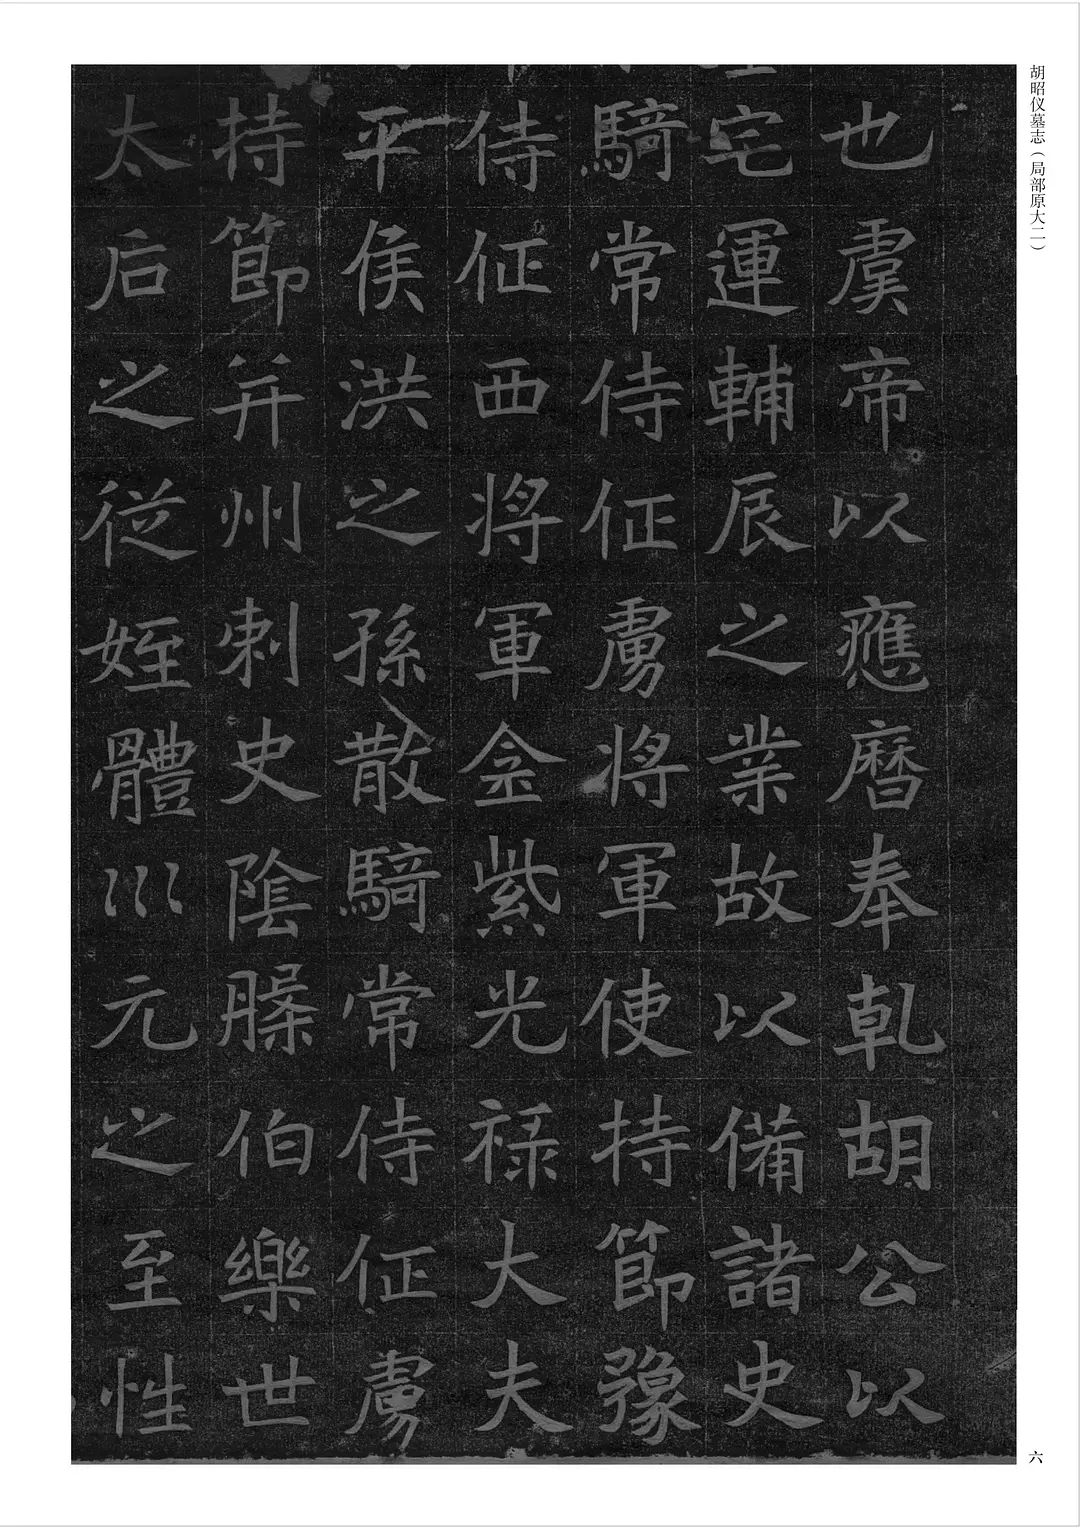 胡昭仪墓志（局部原大二）
也虞帝以應曆奉乹胡公以
宅運輔辰之業故以備諸史
騎常侍征虜将軍使持節豫
侍征西将軍金紫光禄大夫
平侯洪之孫散騎常侍征虜
持節并州刺史陰槃伯樂世
太后之從姪體巛元之至性
六